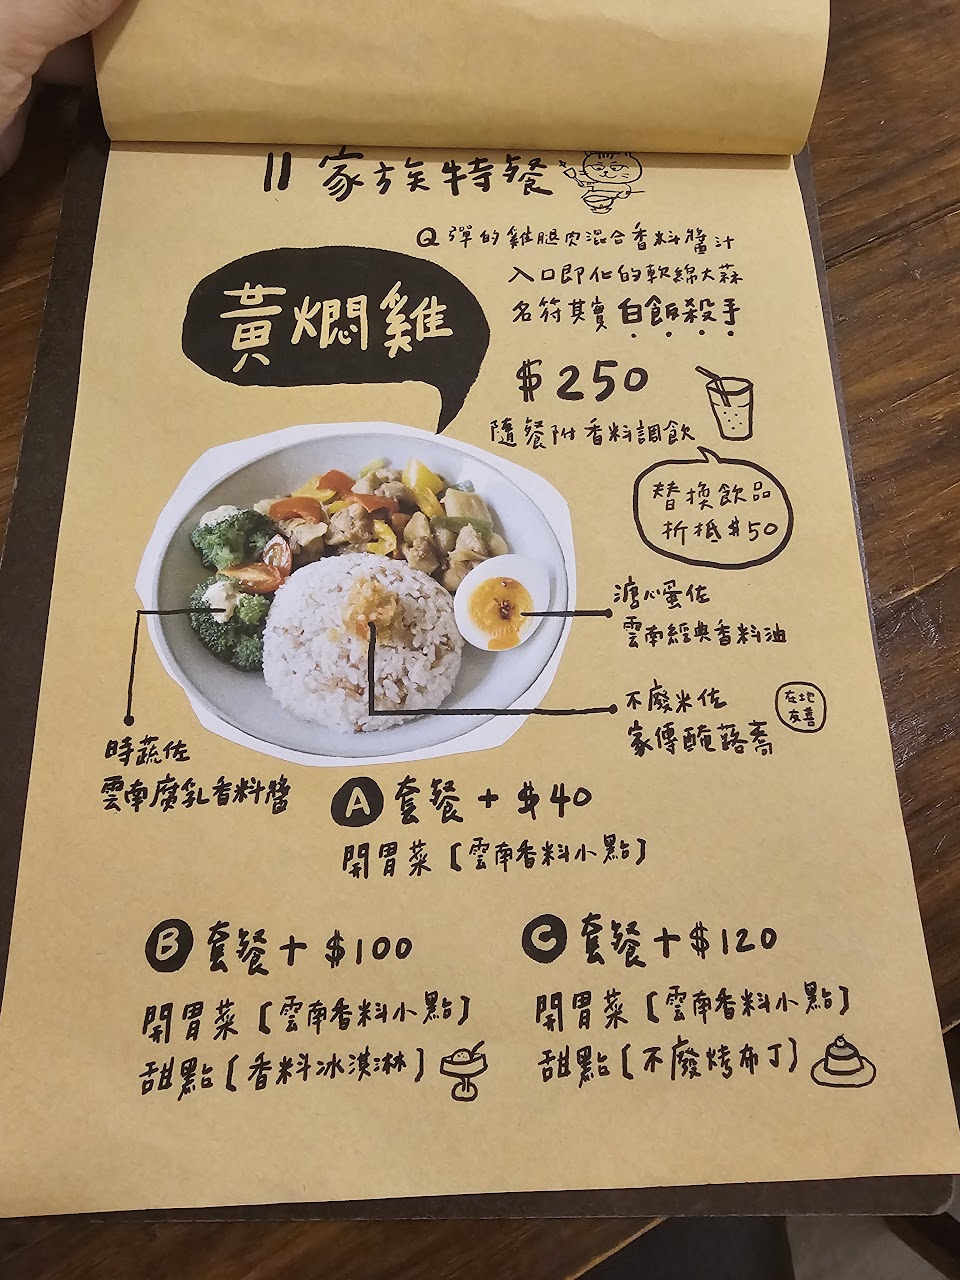 家族特餐
Q彈的雞腿肉混合香料醬汁
入口即化的軟綿大蒜
名符其實白飯殺手
黃燜雞
$250
隨餐附香料調飲
替換飲品
折抵$50
溏心蛋佐
雲南經典香料油
不廢米佐
家傳醃蕗蕎
在地
友善
時蔬佐
雲南腐乳香料醬
A 套餐+$40
開胃菜[雲南香料小點]
B 套餐+$100
開胃菜[雲南香料小點]
甜點[香料冰淇淋]
C 套餐+$120
開胃菜[雲南香料小點]
甜點[不廢烤布丁]